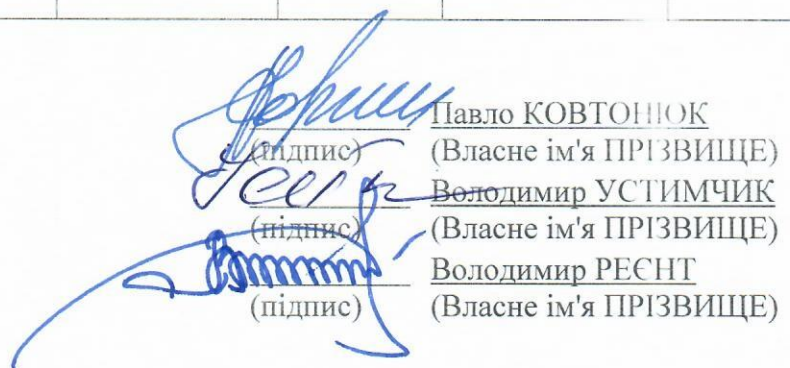 Павло КОВТОНЮК
(підпис) (Власне ім'я ПРІЗВИЩЕ)
Володимир УСТИМЧИК
(підпис) (Власне ім'я ПРІЗВИЩЕ)
Володимир РЕЄНТ
(підпис) (Власне ім'я ПРІЗВИЩЕ)